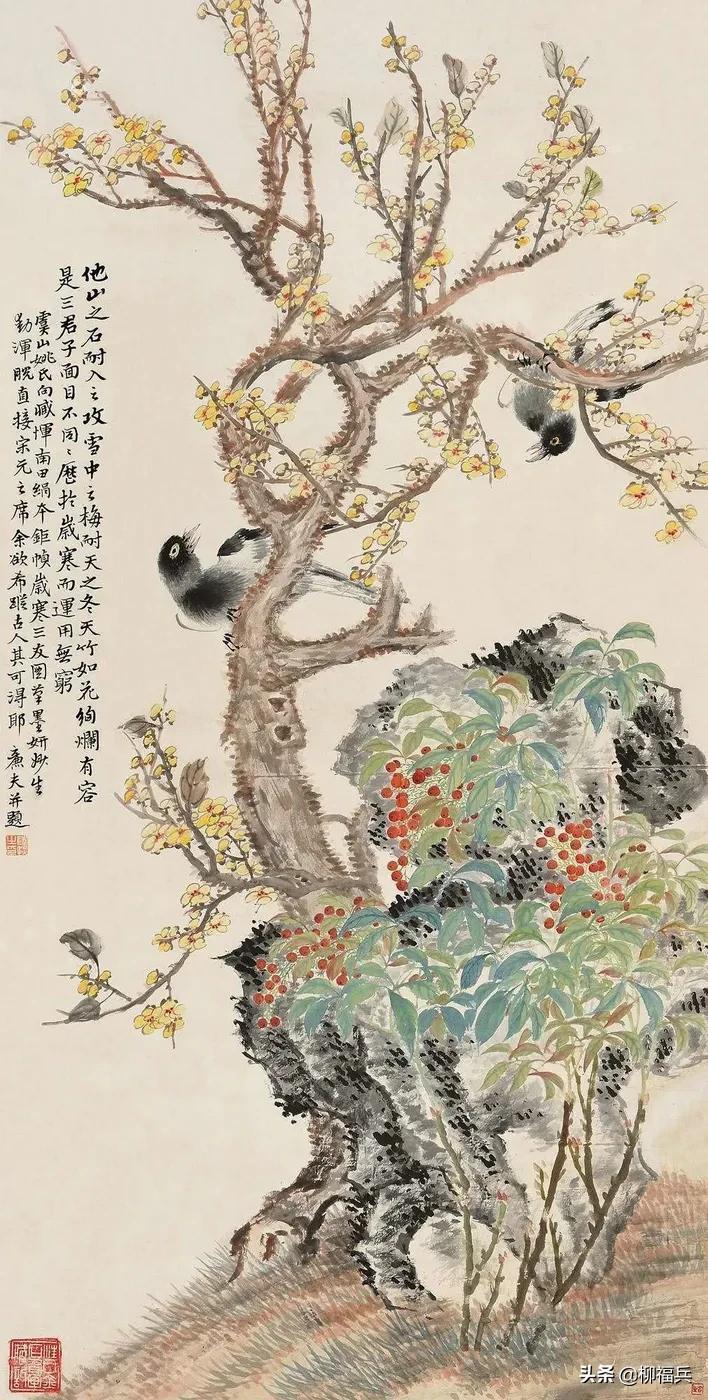 他山之石耐入之攻雪中之梅耐天之冬天竹如花絢爛有容
是三君子面目不同〻歷於歲寒而運用無窮
虞山姚氏向藏惲南田絹本鉅幀歲寒三友圖筆墨妍妙生
動渾脫直接宋元之席余欲希蹤古人其可得耶 廉夫并題
头条 @柳福兵